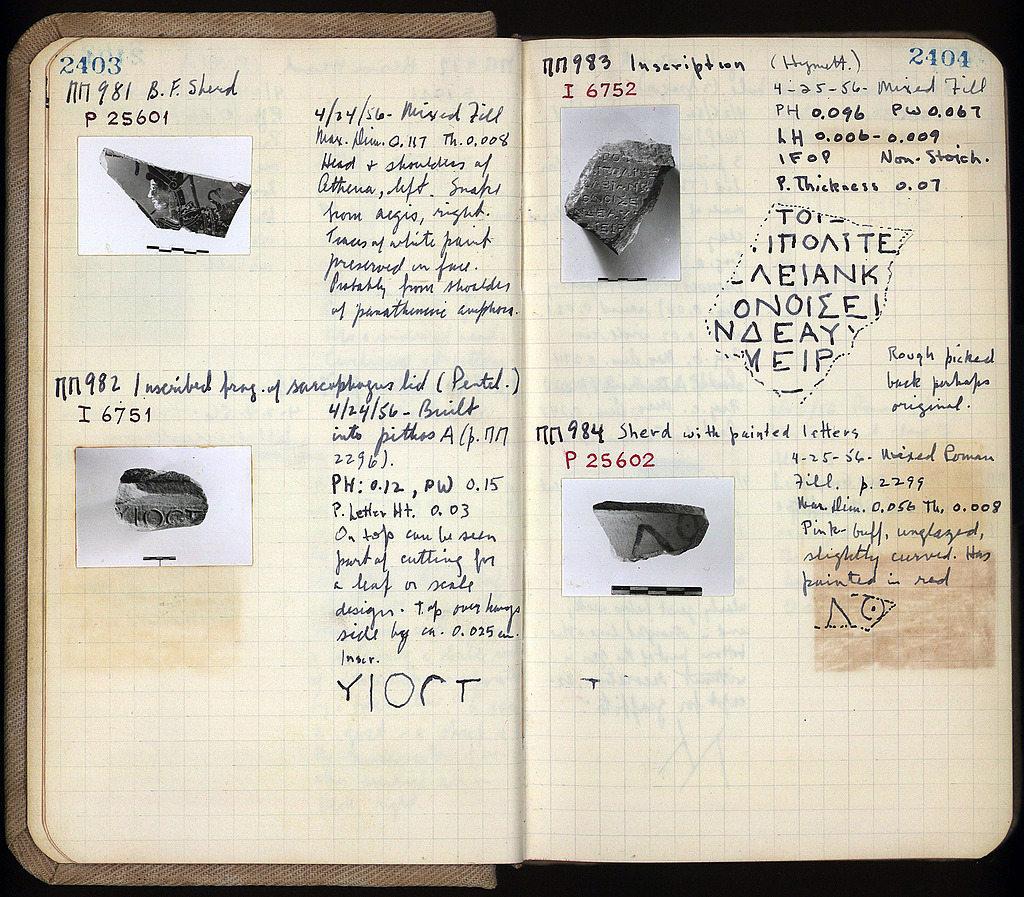 2403
ΠΠ 981 B.F. Sherd
P 25601
4/24/56- Mixed Fill
Max. Dim. 0.117 Th. 0.008
Head & shoulders of
Athena, left. Snake
from aegis, right.
Traces of white paint
preserved on face.
Probably from shoulder
of panathenaic amphora.
ΠΠ 982 Inscribed frag. of sarcophagus lid (Pentel.)
I 6751
4/24/56- Built
into pithos A (p. ΠΠ
2296).
PH: 0.12, PW 0.15
P. Letter Ht. 0.03
On top can be seen
part of cutting for
a leaf or scale
design. Top overhangs
side by ca. 0.025 m.
Inscr.
ΥΙΟCΤ
2404
ΠΠ 983 Inscription (Hymett.)
I 6752
4-25-56- Mixed Fill
PH 0.096 PW 0.067
LH 0.006-0.009
IFOP Non-Stoich.
P. Thickness 0.07
ΤΟΙ-
.ΙΠΟΛΙΤΕ
ΛΕΙΑΝΚ
ΟΝΟΙΣΕΙ
ΝΔΕΑΥΥ
ΜΕΙΡ
Rough picked
back perhaps
original.
ΠΠ 984 Sherd with painted letters
P 25602
4-25-56- Mixed Roman
Fill. p. 2299
Max. Dim. 0.056 Th. 0.008
Pink-buff, unglazed,
slightly curved. Has
painted in red
ΛΟ